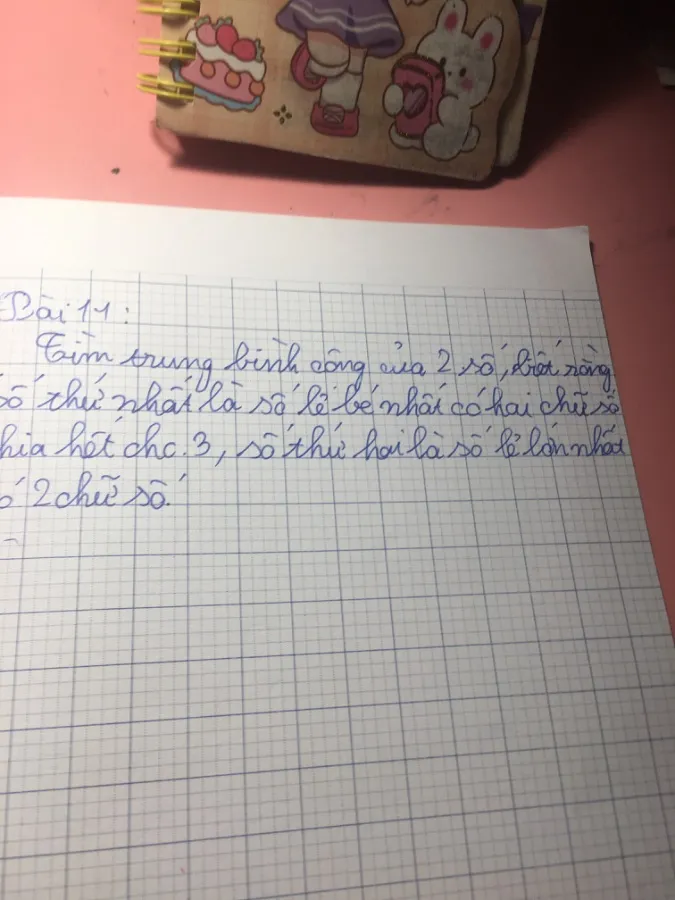 Bài 11:
Tìm trung bình cộng của 2 số, biết rằng
số thứ nhất là số lẻ bé nhất có hai chữ số
chia hết cho 3, số thứ hai là số lẻ lớn nhất
có 2 chữ số.